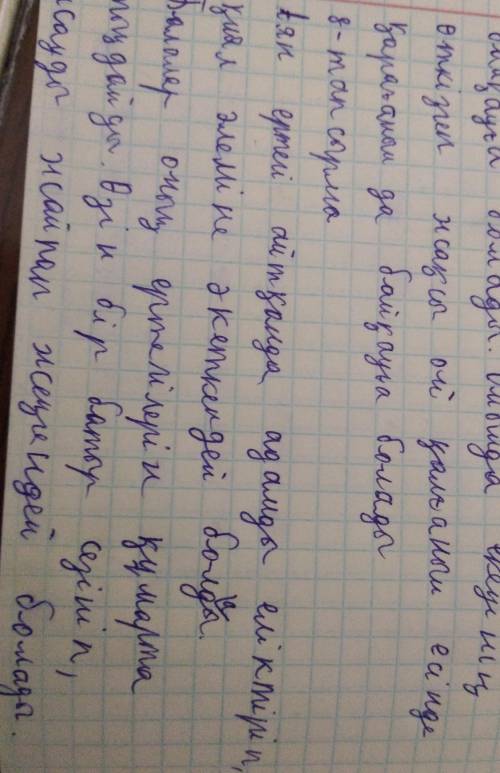 болмады. Сонында әкесінің
өткізген жақсы ой қалғанын есінде
қарағанын да байқауға болады
8-тапсырма
Аяк ертегі айтқанда адамды еліктіріп,
қиял әлеміне әкеткендей болды.
Балалар оның ертегілерін құмарта
тыңдайды. Өзін бір батыр сезініп,
жауды жайпап жеңгендей болады.